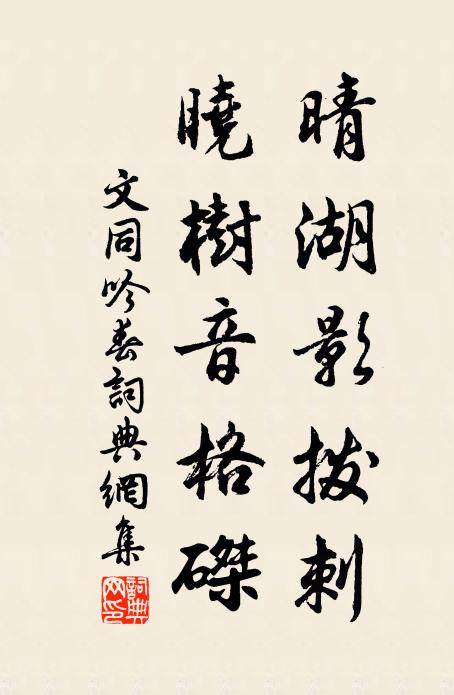 晴湖影拨刺
曉樹音格磔
文同吟春詞典網集
詞典網印